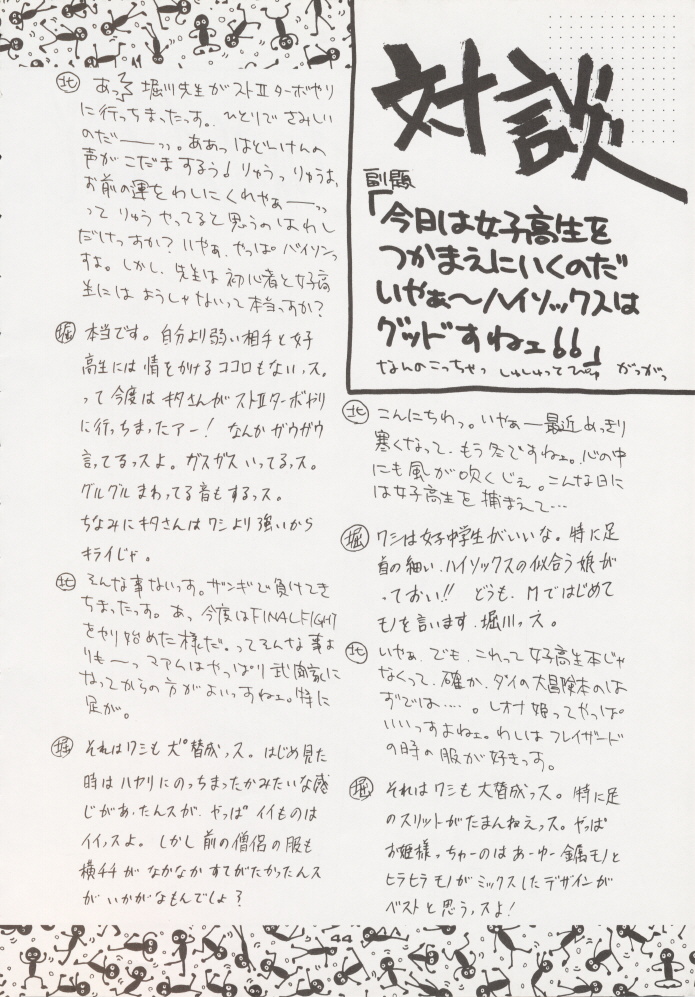 対談
副題
「今日は女子高生を
つかまえにいくのだ
いやぁ〜ハイソックスは
グッドすねェ66」
なんのこっちゃっ しゅしゅってぴゅ がっがっ
北 こんにちわっ。いやぁー最近めっきり
寒くなって、もう冬ですねェ。心の中
にも風が吹くじぇ。こんな日に
は女子高生を捕まえて…
堀 ワシは女子中学生がいいな。特に足
首の細い、ハイソックスの似合う娘が
っておい!! どうも、Mではじめて
モノを言います、堀川っス。
北 いやぁ、でも、これって女子高生本じゃ
なくって、確か、ダイの大冒険本のは
ずでは…。レオナ姫ってやっぱ
いいっすよねェ。わしはフレイザード
の時の服が好きっす。
堀 それはワシも大賛成っス。特に足
のスリットがたまんねえっス。やっぱ
お姫様っちゅーのはあーゆー金属モノと
ヒラヒラモノがミックスしたデザインが
ベストと思うっスよ!
北 あっ 堀川先生がストⅡターボやり
に行っちまったっす。ひとりでさみしい
のだ――ッッ。ああっはどいけんの
声がこだまするぅ! りゅうっりゅうはっ
お前の運をわしにくれやぁ――ッッ
ってりゅうやってると思うのはわし
だけっすか? いやぁ、やっぱバイソンっ
すよ。しかし、先生は初心者と女子高
生にはようしゃないって本当っすか?
堀 本当です。自分より弱い相手と女子
高生には情をかけるココロもないっス。
って今度はキタさんがストⅡターボやり
に行っちまったアー! なんかガウガウ
言ってるっスよ。ガスガスいってるっス。
グルグルまわってる音もするっス。
ちなみにキタさんはワシより強いから
キライじゃ。
北 そんな事ないっす。ザンギで負けてき
ちまったっす。あっ今度はFINALFIGHT
をやり始めた様だ。ってそんな事よ
りも〜っマァムはやっぱり武闘家に
なってからの方がよいっすねェ。特に
足が。
堀 それはワシも大賛成っス。はじめ見た
時はハヤリにのっちまったかみたいな感
じがあったんスが、やっぱイイものは
イイっスよ。しかし前の僧侶の服も
横チチがなかなかすてがたかったんス
がいかがなもんでしょ?
44